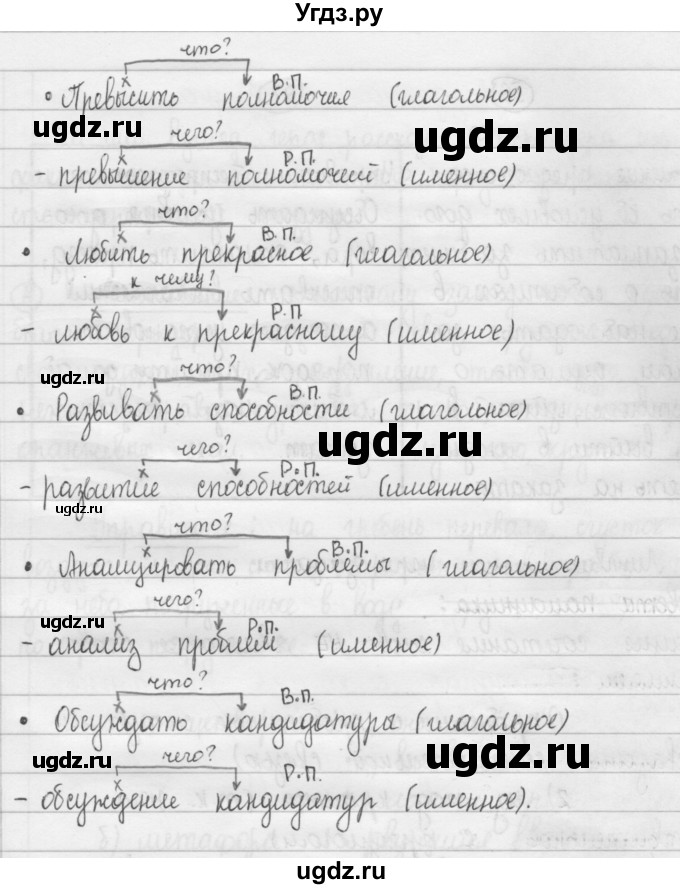 Угдз.ру
что?
В.П.
• Превысить полномочия (глагольное)
ugdz.ru ugdz.ru
чего?
Р.П.
- превышение полномочий (именное)
что?
В.П.
• Любить прекрасное (глагольное)
ugdz.ru
к чему?
Р.П
- любовь к прекрасному (именное)
что?
ugdz.ru
В.П.
• Развивать способности (глагольное)
ugdz.ru
чего?
Р.П.
- развитие способностей (именное)
ugdz.ru
что?
В.П.
• Анализировать проблемы (глагольное)
чего?
ugdz.ru
Р.П.
ugdz.ru
- анализ проблем (именное)
что?
В.П.
• Обсуждать кандидатуры (глагольное)
ugdz.ru ugdz.ru
чего?
Р.П.
- обсуждение кандидатур (именное).
ugdz.ru